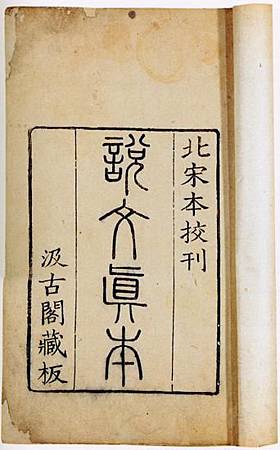 北宋本挍刊
說文真本
汲古閣藏板